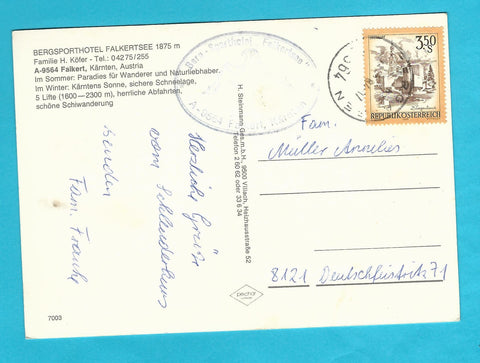 BERGSPORTHOTEL FALKERTSEE 1875 m
Familie H. Köfer - Tel.: 04275/255
A-9564 Falkert, Kärnten, Austria
Im Sommer: Paradies für Wanderer und Naturliebhaber.
Im Winter: Kärntens Sonne, sichere Schneelage,
5 Lifte (1600—2300 m), herrliche Abfahrten,
schöne Schiwanderung
Berg-Sporthotel Falkertsee
A-9564 Falkert, Kärnten
350
S
REPUBLIK ÖSTERREICH
9564
H. Steinmann Ges.m.b.H., 9500 Villach, Heizhausstraße 52
Telefon 2 60 62 oder 33 6 34
Herzliche Grüße
vom
senden
Fam. Frank
Fam.
Müller Annelies
8121 Deutschfeistritz 71
pechar
7003